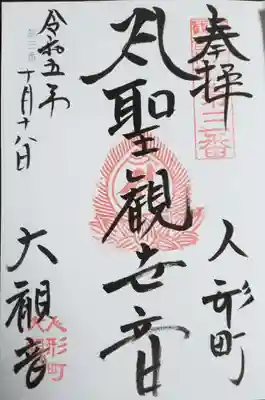 奉拝
第三番
人形町
聖観世音
大観音
人形町
令和五年
十月十八日